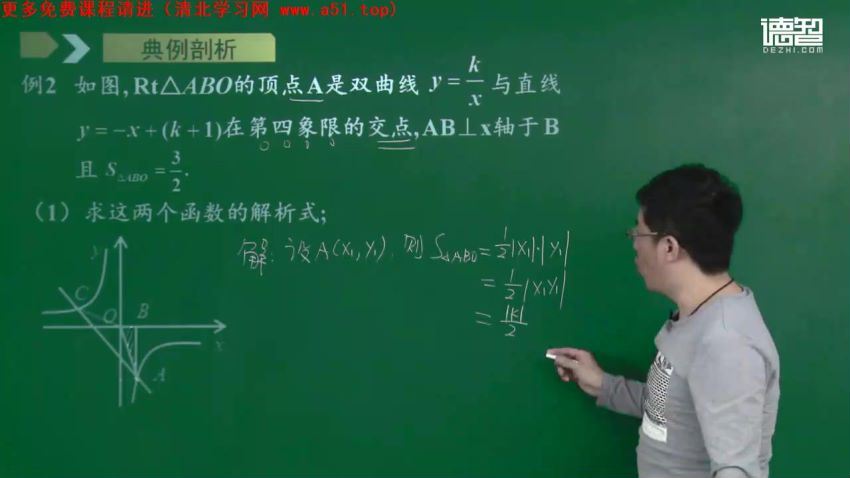 更多免费课程请进（清北学习网 www.a51.top)
德智
DEZHI.COM
典例剖析
例2 如图,Rt△ABO的顶点A是双曲线 y=k/x 与直线
y=-x+(k+1)在第四象限的交点,AB⊥x轴于B
且 S△ABO=3/2.
（1）求这两个函数的解析式;
解：设A(x₁,y₁),则 S△ABO=1/2|x₁|·|y₁|
=1/2|x₁y₁|
=|k|/2
y
C
O
B
x
A